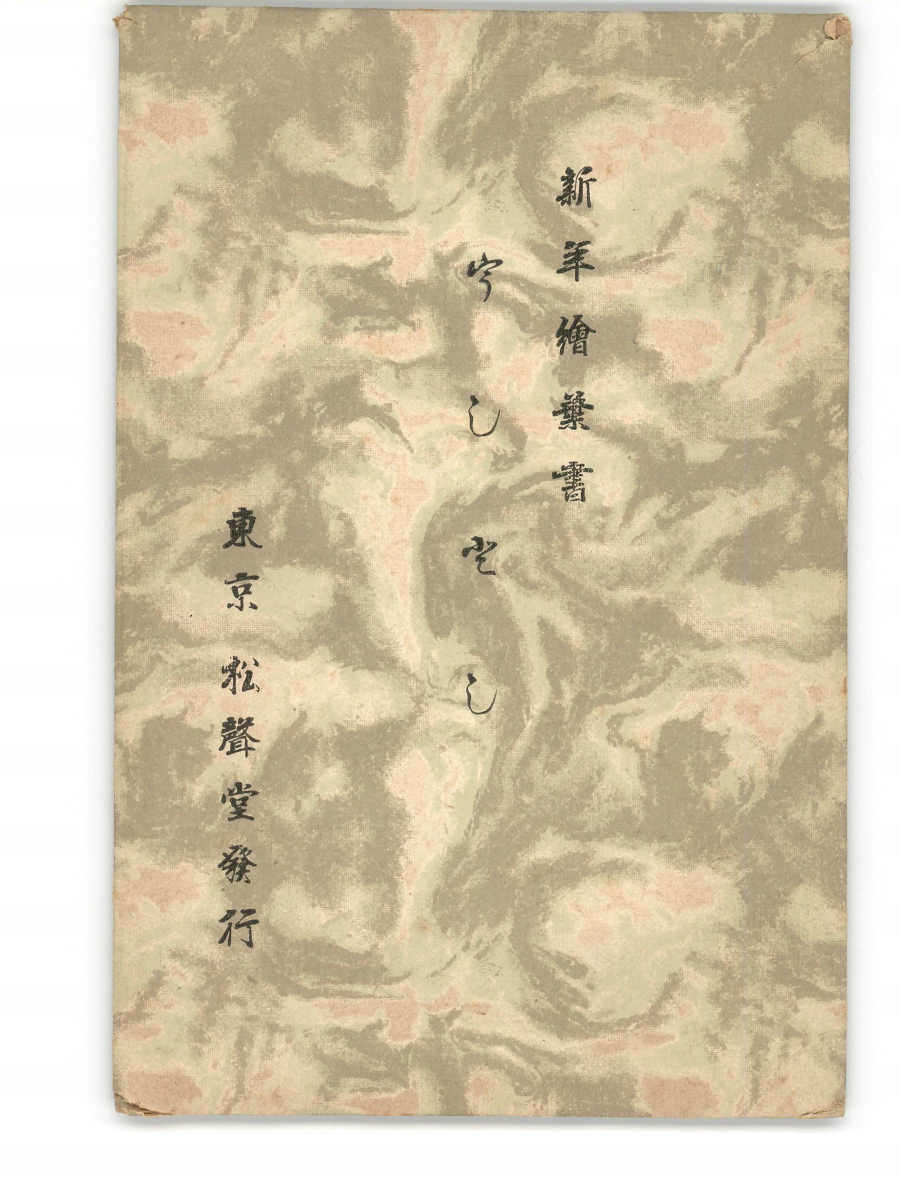 新年繪葉書
宇し登し
東京 松聲堂發行